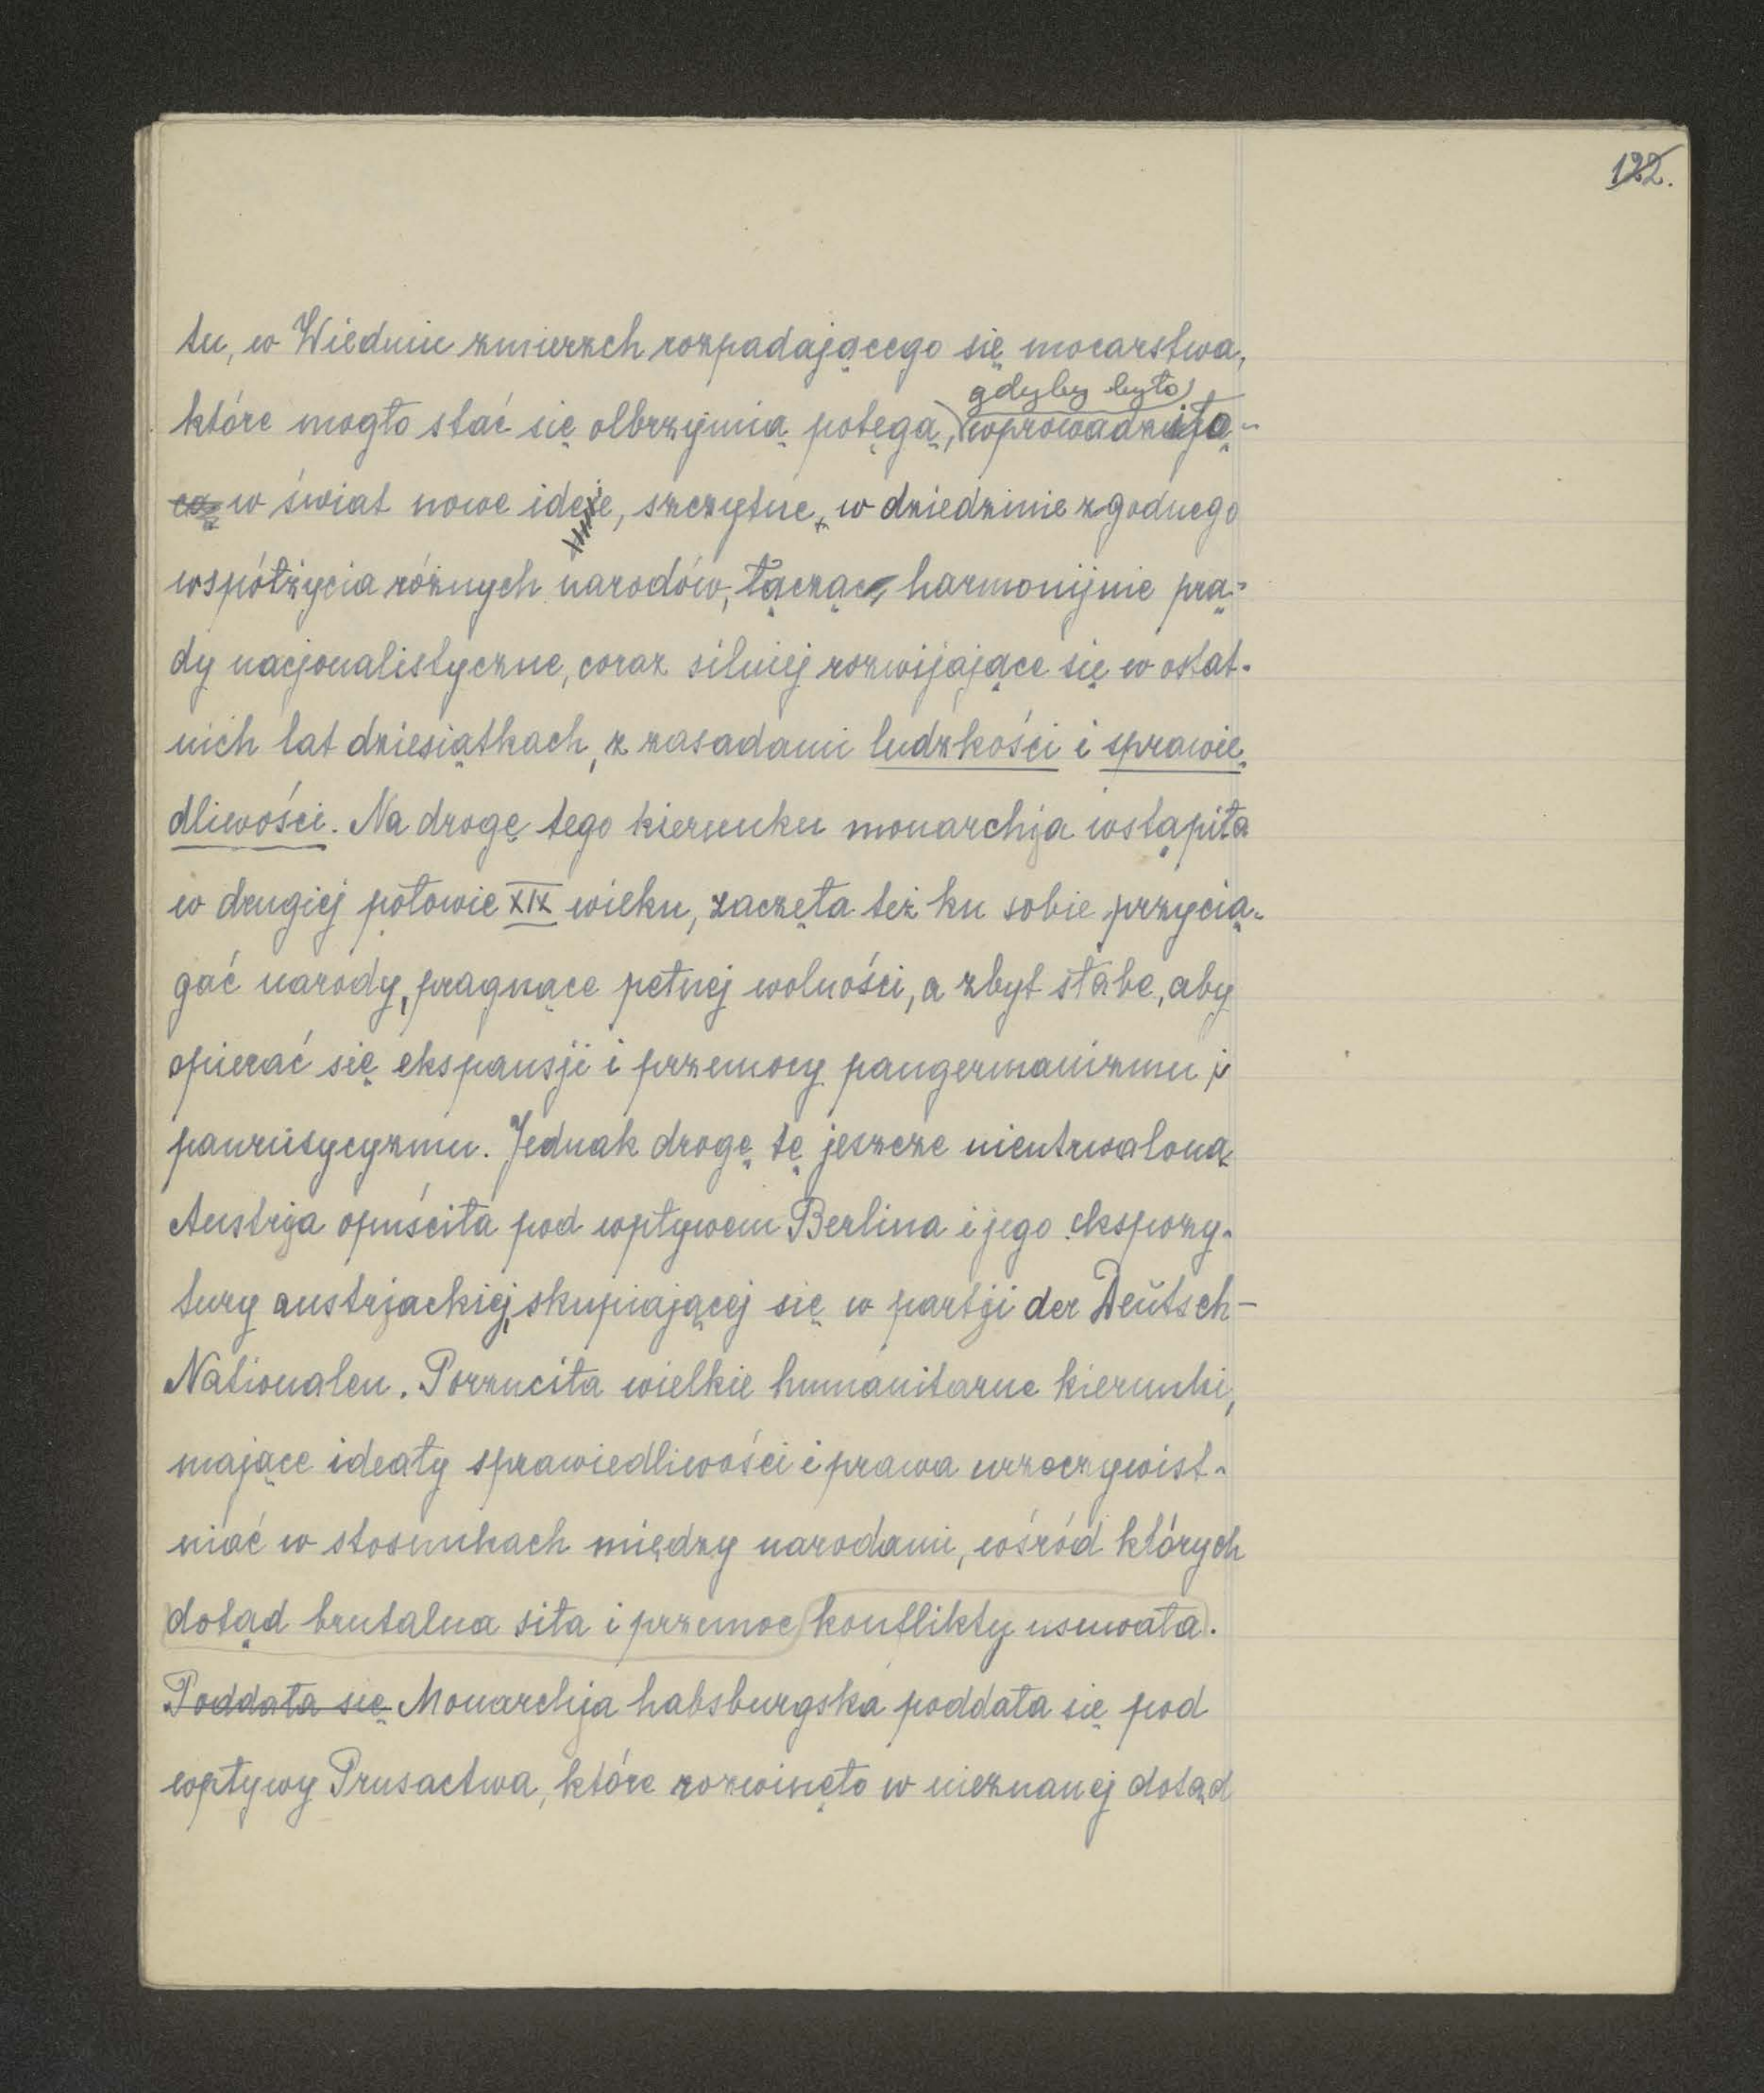 122.
tu, w Wiedniu zmierzch rozpadającego się mocarstwa,
gdyby było
które mogło stać się olbrzymią potęgą, wprowadziło
cą w świat nowe ideje, szczytne, w dziedzinie zgodnego
współżycia różnych narodów, łącząc harmonijnie prą-
dy nacjonalistyczne, coraz silniej rozwijające się w ostat-
nich lat dziesiątkach, z zasadami ludzkości i sprawie-
dliwości. Na drogę tego kierunku monarchja wstąpiła
w drugiej połowie XIX wieku, zaczęła też ku sobie przycią-
gać narody, pragnące pełnej wolności, a zbyt słabe, aby
opierać się ekspansji i przemocy pangermanizmu i
panrusycyzmu. Jednak drogę tę jeszcze nieutrwaloną
Austrja opuściła pod wpływem Berlina i jego ekspozy-
tury austrjackiej, skupiającej się w partji der Deŭtsch-
Nationalen. Porzuciła wielkie humanitarne kierunki,
mające ideały sprawiedliwości i prawa urzeczywist-
niać w stosunkach między narodami, wśród których
dotąd brutalna siła i przemoc konflikty usuwała.
Poddała się Monarchja habsburgska poddała się pod
wpływy Prusactwa, które rozwinęło w nieznanej dotąd